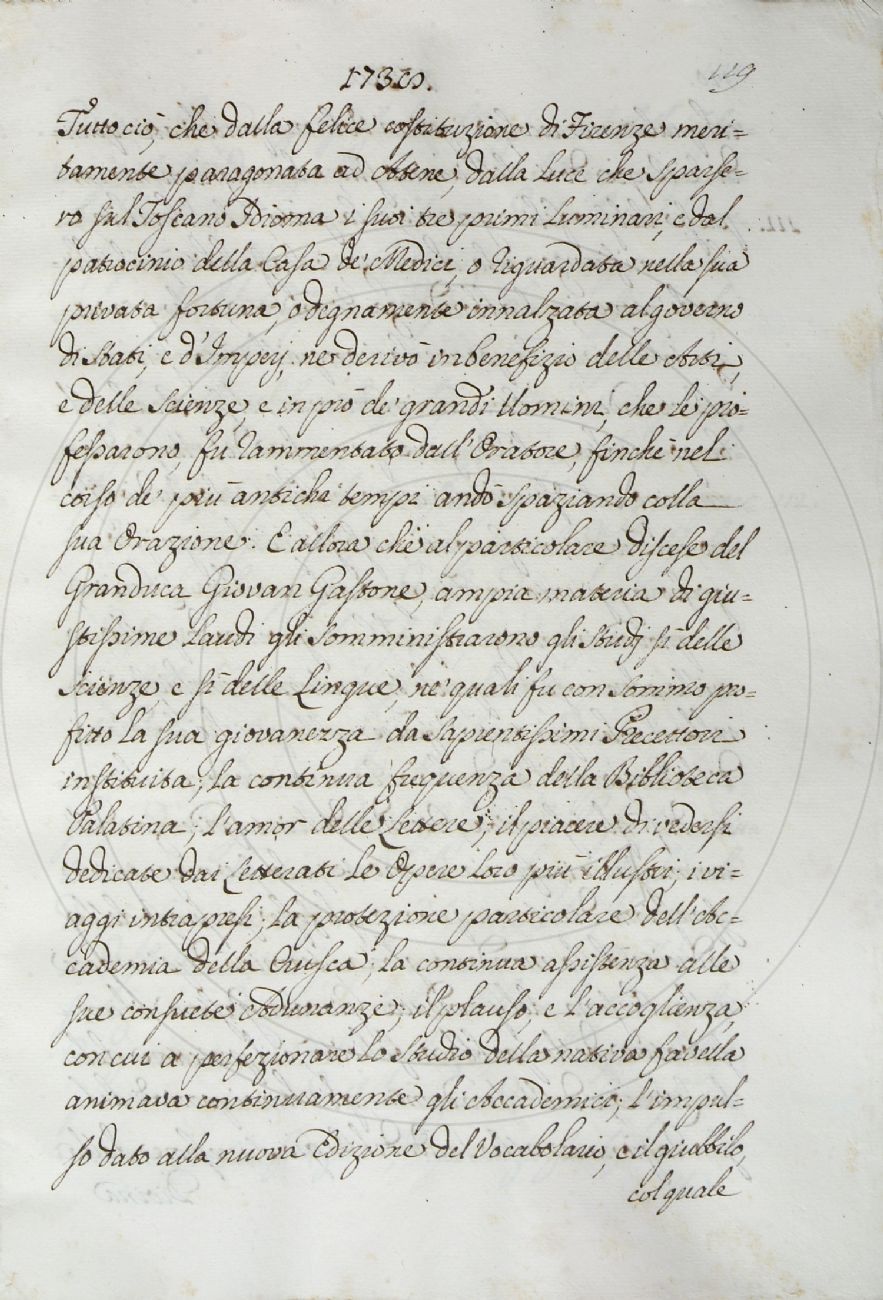 119
Tutto ciò, che dalla felice costituzione di Firenze meri=
tamente paragonata ad Atene, dalla Luce che sparse-
ro sul Toscano Idioma i suoi tre primi Luminari, e dal
patrocinio della Casa de' Medici, o riguardata nella sua
privata fortuna, o degnamente innalzata al governo
di Stati, e d'Imperj, ne derivò in benefizio delle Arti,
e delle Scienze, e in prò de' grandi Uomini, che le pro=
fessarono, fu rammentato dall'Oratore, finchè nel
corso de' più antichi tempi andò spaziando colla
sua Orazione. E allora chè al particolare discese del
Granduca Giovan Gastone, ampia materia di giu=
stissime Laudi gli somministrarono gli Studj sì delle
Scienze, e sì delle Lingue, ne' quali fu con sommo pro=
fitto La sua giovanezza da sapientissimi Precettori
instituita; La continua frequenza della Biblioteca
Palatina; l'amor delle Lettere; il piacere di vedersi
dedicate dai Letterati Le Opere Loro più illustri; i vi=
aggi intrapresi; La protezione particolare dell'Ac=
cademia della Crusca; La continua assistenza alle
sue consuete Adunanze; il plauso, e l'accoglienza,
con cui a perfezionare Lo Studio della nativa favella
animava continuamente gli Accademici; l'impul=
so dato alla nuova Edizione del Vocabolario, e il giubbilo,
col quale